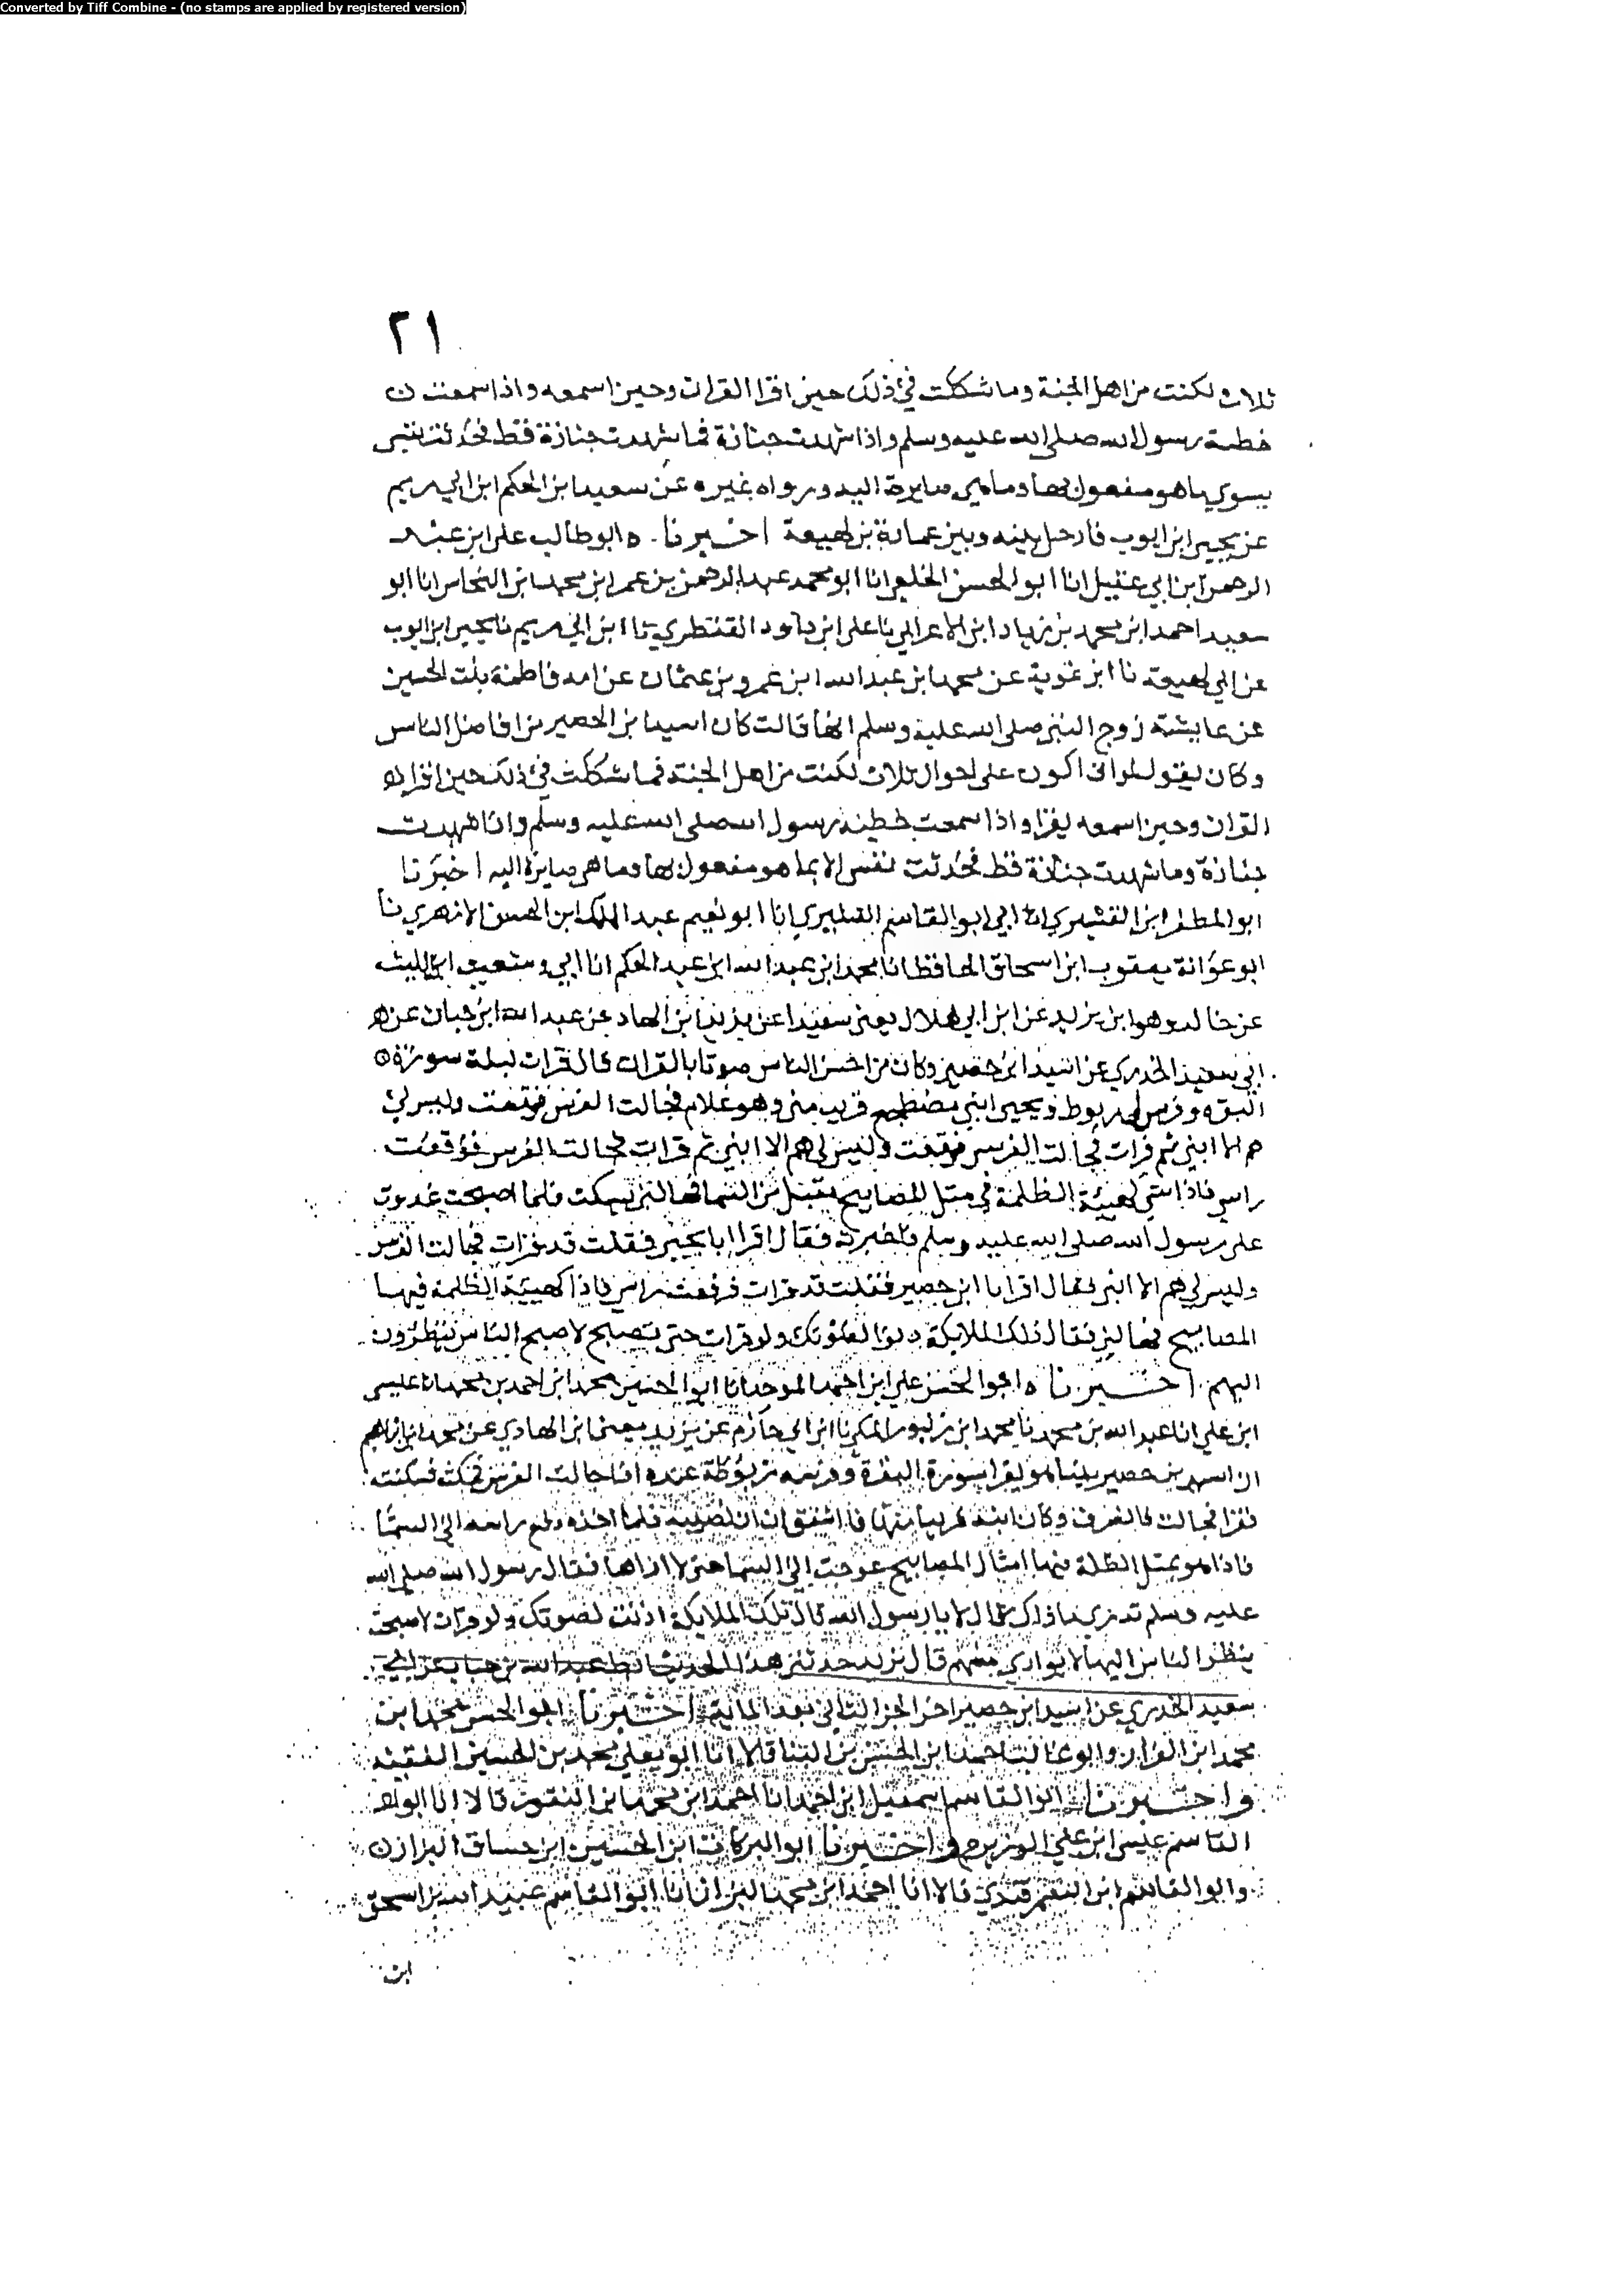 Converted by Tiff Combine - (no stamps are applied by registered version)
٢١
ثلاث لكنت من اهل الجنة وما شككت في ذلك حين اقرا القران وحين اسمعه واذا سمعت
خطبة رسول الله صلى الله عليه وسلم واذا شهدت جنازة فما شهدت جنازة قط فحدثت نفسي
بسوي ما هو مفعول بها وما هي صايرة اليه ورواه غيره عن سعيد ابن الحكم ابن ابي مريم
عن يحيى ابن ايوب فادخل بينه وبين عمارة بن لهيعة اخبرنا ه ابو طالب على ابن عبد
الرحمن ابن ابي عقيل انا ابو الحسن الخلعي انا ابو محمد عبد الرحمن بن عمر ابن محمد ابن النحاس انا ابو
سعيد احمد ابن محمد بن زياد ابن الاعرابي نا على ابن داود القنطري نا ابن ابي مريم نا يحيى ابن ايوب
عن ابي لهيعة نا ابن غزية عن محمد ابن عبد الله ابن عمرو بن عثمان عن امه فاطمة بنت الحسين
عن عايشة زوج النبي صلى الله عليه وسلم انها قالت كان اسيد ابن الحصير من افاضل الناس
وكان يقول لو اني اكون على احوال ثلاث لكنت من اهل الجنة فما شككت في ذلك حين اقرا
القران وحين اسمعه يقرا واذا سمعت خطبة رسول الله صلى الله عليه وسلم واذا شهدت
جنازة وما شهدت جنازة قط فحدثت نفسي الا بما هو مفعول بها وما هي صايرة اليه اخبرنا
ابو المظفر ابن القشيري انا ابي ابو القاسم القشيري انا ابو نعيم عبد الملك ابن الحسن الازهري نا
ابو عوانة يعقوب ابن اسحاق الحافظ انا محمد ابن عبد الله ابن عبد الحكم انا ابي وشعيب ابن الليث
عن خالد وهو ابن يزيد عن ابن ابي هلال يعني سعيدا عن يزيد ابن الهاد عن عبد الله ابن خباب عن
ابي سعيد الخدري عن اسيد ابن حضير وكان من احسن الناس صوتا بالقران قال قرات ليلة سورة
البقرة وفرس لي مربوط ويحيى ابني مضطجع قريب مني وهو غلام فجالت الفرس فقمت وليس لي
هم الا ابني ثم قرات فجالت الفرس فقمت وليس لي هم الا ابني ثم قرات فجالت الفرس فرفعت
راسي فاذا شي كهيئة الظلمة في مثل المصابيح مقبل من السما فهالني فسكت فلما اصبحت غدوت
على رسول الله صلى الله عليه وسلم فاخبرته فقال اقرا ابا يحيى فقلت قد قرات فجالت الفرس
وليس لي هم الا ابني فقال اقرا يا ابن حصير فقلت قد قرات فرفعت راسي فاذا كهيئة الظلمة فيها
المصابيح فهالني فقال ذلك الملايكة دنوا لصوتك ولو قرات حتى تصبح لاصبح الناس ينظرون
اليهم اخبرنا ه ابو الحسن علي ابن احمد الموحد انا ابو الحسين محمد ابن احمد بن محمد انا عيسى
ابن علي انا عبد الله بن محمد نا محمد ابن زنبور المكي نا ابن ابي حازم عن يزيد يعني ابن الهادي عن محمد ابن ابراهيم
ان اسيد بن حصير بينا هو يقرا سورة البقرة وفرسه مربوطة عنده اذا جالت الفرس فسكت فسكنت
فقرا فجالت فانصرف وكان ابنه قريبا منها فاشفق ان تصيبه فلما اخذه رفع راسه الى السما
فاذا هو بمثل الظلة فيها امثال المصابيح عرجت الى السما حتى لا اراها فقال رسول الله صلى الله
عليه وسلم تدري ما ذاك قال لا يا رسول الله قال تلك الملايكة اذنت لصوتك ولو قرات لاصبحت
ينظر الناس اليها لا تواري منهم قال يزيد حدثني هذا الحديث عبد الله بن خباب عن ابي
سعيد الخدري عن اسيد ابن حصير اخر الجز الثاني بعد الماية اخبرنا ابو الحسن محمد ابن
محمد ابن الفرا وابو غالب احمد ابن الحسن بن البنا قالا انا ابو يعلى محمد بن الحسين الفقيه
واخبرنا ابو القاسم اسمعيل ابن احمد انا احمد ابن محمد ابن النقور قالا انا ابو
القاسم عيسى ابن علي الوزير ح واخبرنا ابو البركات ابن الحسين
وابو القاسم ابن السمرقندي قالا انا احمد ابن محمد البزاز انا ابو القاسم عبيد الله بن اسحق
ابن